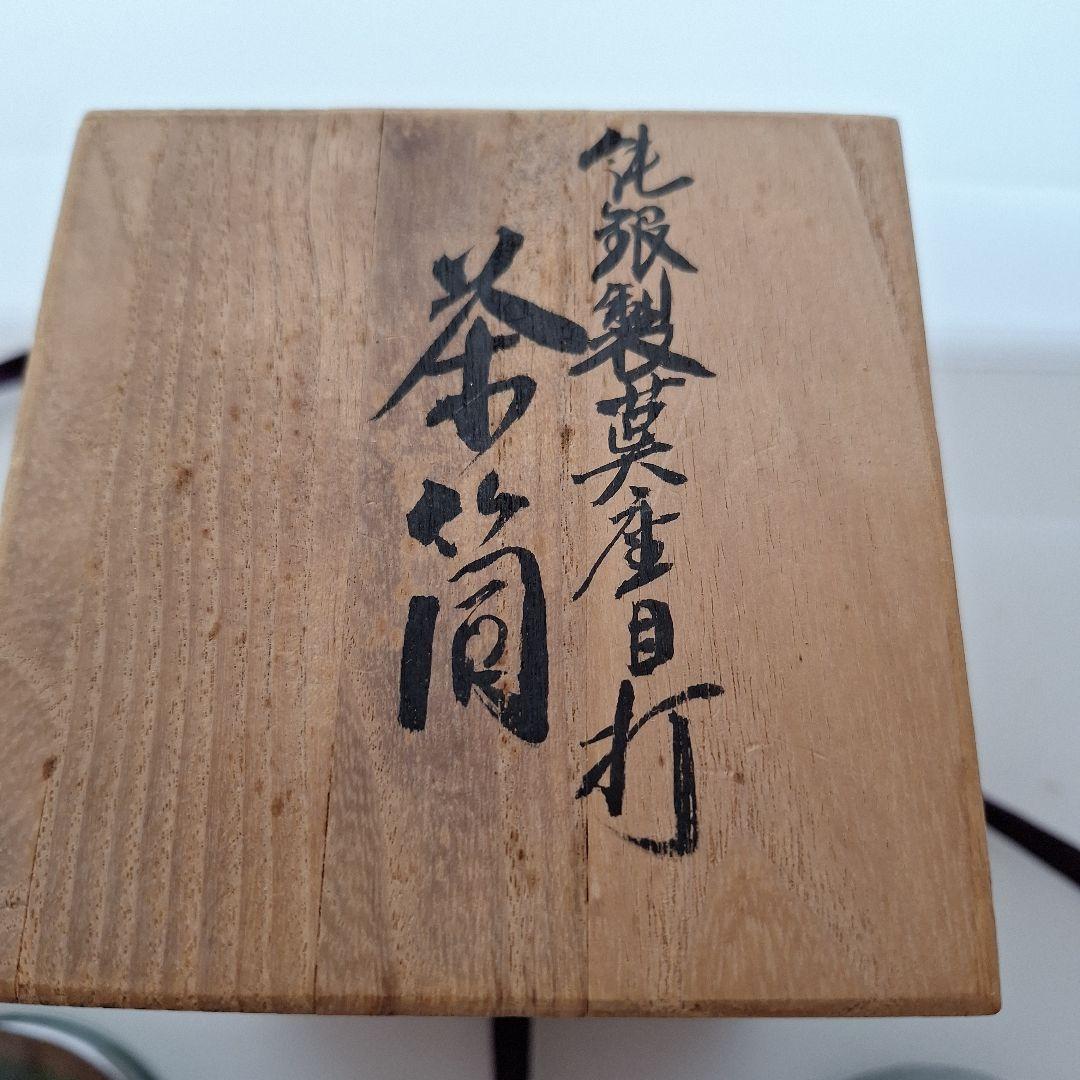 純銀製茣座目打
茶筒